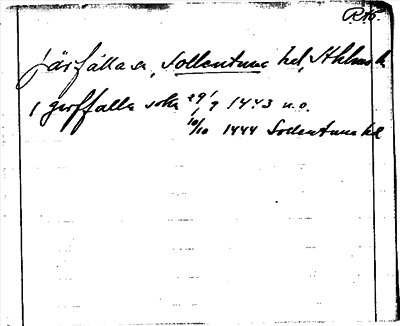 R15.
Järfälla sn, Sollentuna hd, Sthlms l.
i gerffalla sokn 29/9 1443 u.o.
10/10 1444 Sollentuna hd